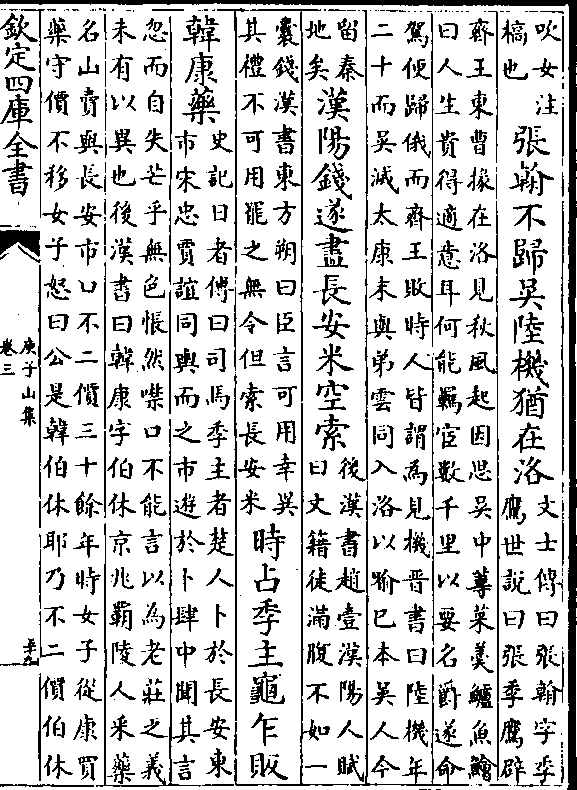 吹女注
槁也
張翰不歸吳陸機猶在洛
文士傳曰張翰字季
鷹世說曰張季鷹辟
齊王東曹掾在洛見秋風起因思吳中蓴菜羮鱸魚鱠
曰人生貴得適意耳何能羈宦數千里以要名爵遂命
駕便歸俄而齊王敗時人皆謂為見機晉書曰陸機年
二十而吳滅太康末與弟雲同入洛以喻已本吳人今
留秦
地矣
漢陽錢遂盡長安米空索
後漢書趙壹漢陽人賦
曰文籍徒滿腹不如一
囊錢漢書東方朔曰臣言可用幸異
其禮不可用罷之無令但索長安米
時占季主龜乍販
韓康藥
史記日者傳曰司馬季主者楚人卜於長安東
市宋忠賈誼同輿而之市遊於卜肆中聞其言
忽而自失芒乎無色悵然噤口不能言以為老莊之義
未有以異也後漢書曰韓康字伯休京兆覇陵人采藥
名山賣與長安市口不二價三十餘年時女子從康買
藥守價不移女子怒曰公是韓伯休耶乃不二價伯休
欽定四庫全書
庾子山集
卷三